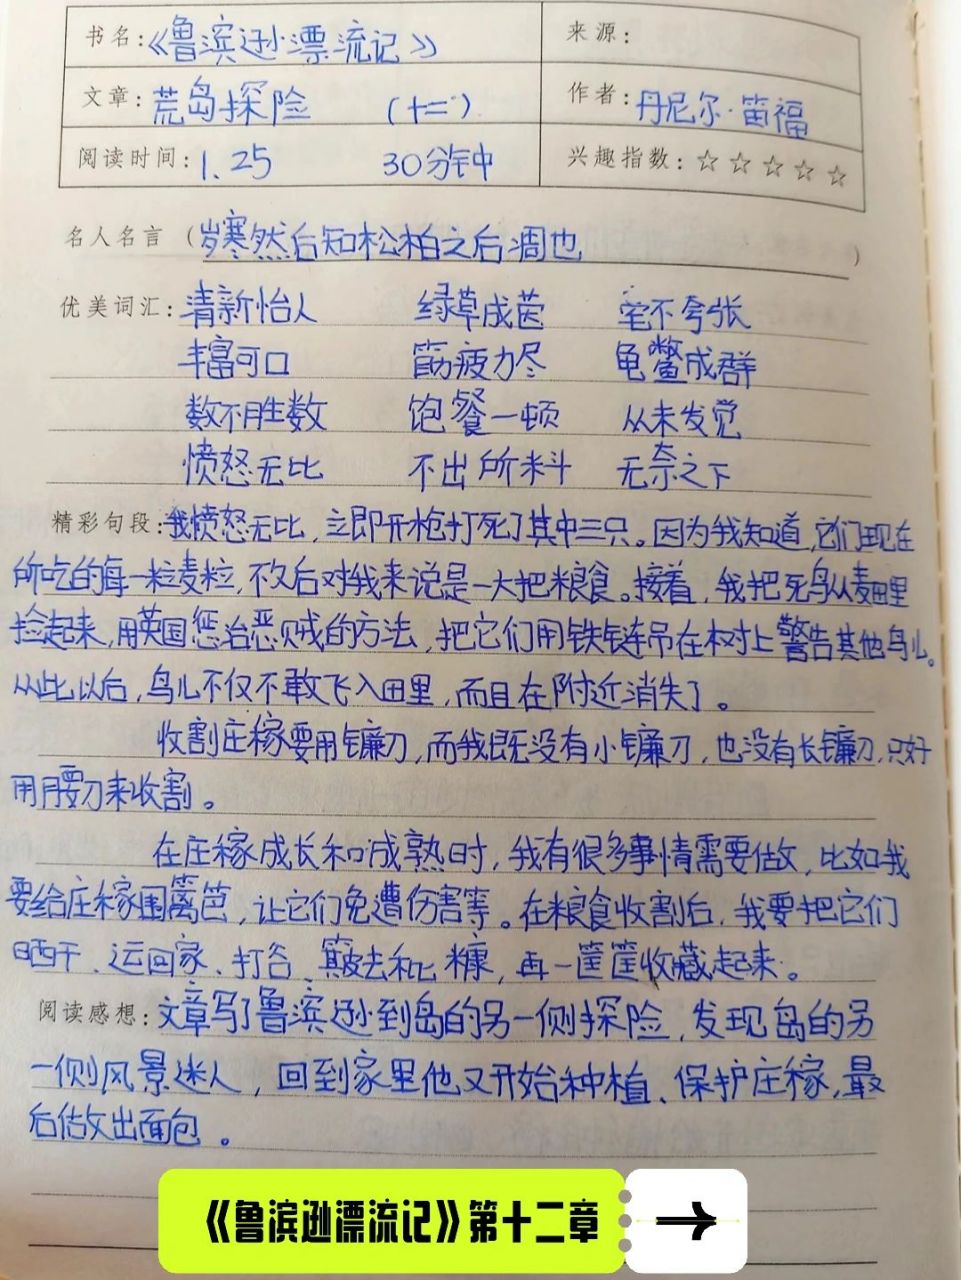 书名：《鲁滨逊漂流记》 来源：
文章：荒岛探险 （十二） 作者：丹尼尔·笛福
阅读时间：1.25 30分钟 兴趣指数：☆☆☆☆☆
名人名言（岁寒然后知松柏之后凋也）
优美词汇：清新怡人 绿草成茵 毫不夸张
丰富可口 筋疲力尽 龟鳖成群
数不胜数 饱餐一顿 从未发觉
愤怒无比 不出所料 无奈之下
精彩句段：我愤怒无比，立即开枪打死了其中三只。因为我知道，它们现在
所吃的每一粒麦粒，不久后对我来说是一大把粮食。接着，我把死鸟从麦田里
捡起来，用英国惩治恶贼的方法，把它们用铁链吊在树上警告其他鸟儿。
从此以后，鸟儿不仅不敢飞入田里，而且在附近消失了。
收割庄稼要用镰刀，而我既没有小镰刀，也没有长镰刀，只好
用腰刀来收割。
在庄稼成长和成熟时，我有很多事情需要做，比如我
要给庄稼围篱笆，让它们免遭伤害等。在粮食收割后，我要把它们
晒干、运回家、打谷、簸去秕糠，再一筐筐收藏起来。
阅读感想：文章写了鲁滨逊到岛的另一侧探险，发现岛的另
一侧风景迷人，回到家里他又开始种植、保护庄稼，最
后做出面包。
《鲁滨逊漂流记》第十二章 →